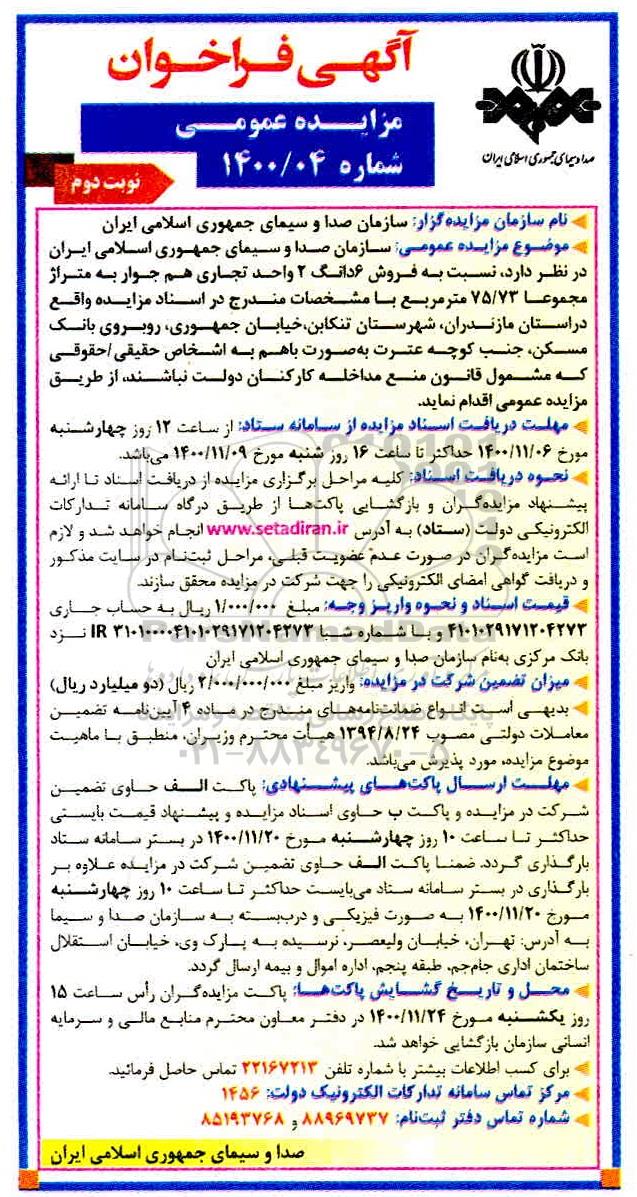 آگهی فراخوان
صدا و سیمای جمهوری اسلامی ایران
مزایده عمومی
شماره ۱۴۰۰/۰۴
نوبت دوم
نام سازمان مزایده‌گزار: سازمان صدا و سیمای جمهوری اسلامی ایران
موضوع مزایده عمومی: سازمان صدا و سیمای جمهوری اسلامی ایران
در نظر دارد، نسبت به فروش ۶دانگ ۲ واحد تجاری هم جوار به متراژ
مجموعا ۷۵/۷۳ مترمربع با مشخصات مندرج در اسناد مزایده واقع
دراستان مازندران، شهرستان تنکابن،خیابان جمهوری، روبروی بانک
مسکن، جنب کوچه عترت به‌صورت باهم به اشخاص حقیقی/حقوقی
که مشمول قانون منع مداخله کارکنان دولت نباشند، از طریق
مزایده عمومی اقدام نماید.
مهلت دریافت اسناد مزایده از سامانه ستاد: از ساعت ۱۲ روز چهارشنبه
مورخ ۱۴۰۰/۱۱/۰۶ حداکثر تا ساعت ۱۶ روز شنبه مورخ ۱۴۰۰/۱۱/۰۹ می‌باشد.
نحوه دریافت اسناد: کلیه مراحل برگزاری مزایده از دریافت اسناد تا ارائه
پیشنهاد مزایده‌گران و بازگشایی پاکت‌ها از طریق درگاه سامانه تدارکات
الکترونیکی دولت (ستاد) به آدرس www.setadiran.ir انجام خواهد شد و لازم
است مزایده‌گران در صورت عدم عضویت قبلی، مراحل ثبت‌نام در سایت مذکور
و دریافت گواهی امضای الکترونیکی را جهت شرکت در مزایده محقق سازند.
قیمت اسناد و نحوه واریز وجه: مبلغ ۱/۰۰۰/۰۰۰ ریال به حساب جاری
۴۱۰۱۰۲۹۱۷۱۲۰۴۲۷۳ و یا شماره شبا IR ۳۱۰۱۰۰۰۰۴۱۰۱۰۲۹۱۷۱۲۰۴۲۷۳ نزد
بانک مرکزی به‌نام سازمان صدا و سیمای جمهوری اسلامی ایران
میزان تضمین شرکت در مزایده: واریز مبلغ ۲/۰۰۰/۰۰۰/۰۰۰ ریال (دو میلیارد ریال)
بدیهی است انواع ضمانت‌نامه‌های مندرج در ماده ۴ آیین‌نامه تضمین
معاملات دولتی مصوب ۱۳۹۴/۸/۲۴ هیأت محترم وزیران، منطبق با ماهیت
موضوع مزایده، مورد پذیرش می‌باشد.
مهلت ارسال پاکت‌های پیشنهادی: پاکت الف حاوی تضمین
شرکت در مزایده و پاکت ب حاوی اسناد مزایده و پیشنهاد قیمت بایستی
حداکثر تا ساعت ۱۰ روز چهارشنبه مورخ ۱۴۰۰/۱۱/۲۰ در بستر سامانه ستاد
بارگذاری گردد. ضمنا پاکت الف حاوی تضمین شرکت در مزایده علاوه بر
بارگذاری در بستر سامانه ستاد می‌بایست حداکثر تا ساعت ۱۰ روز چهارشنبه
مورخ ۱۴۰۰/۱۱/۲۰ به صورت فیزیکی و درب‌بسته به سازمان صدا و سیما
به آدرس: تهران، خیابان ولیعصر، نرسیده به پارک وی، خیابان استقلال
ساختمان اداری جام‌جم، طبقه پنجم، اداره اموال و بیمه ارسال گردد.
محل و تاریخ گشایش پاکت‌ها: پاکت مزایده‌گران رأس ساعت ۱۵
روز یکشنبه مورخ ۱۴۰۰/۱۱/۲۴ در دفتر معاون محترم منابع مالی و سرمایه
انسانی سازمان بازگشایی خواهد شد.
برای کسب اطلاعات بیشتر با شماره تلفن ۲۲۱۶۷۲۱۳ تماس حاصل فرمائید.
مرکز تماس سامانه تدارکات الکترونیک دولت: ۱۴۵۶
شماره تماس دفتر ثبت‌نام: ۸۸۹۶۹۷۳۷ و ۸۵۱۹۳۷۶۸
صدا و سیمای جمهوری اسلامی ایران